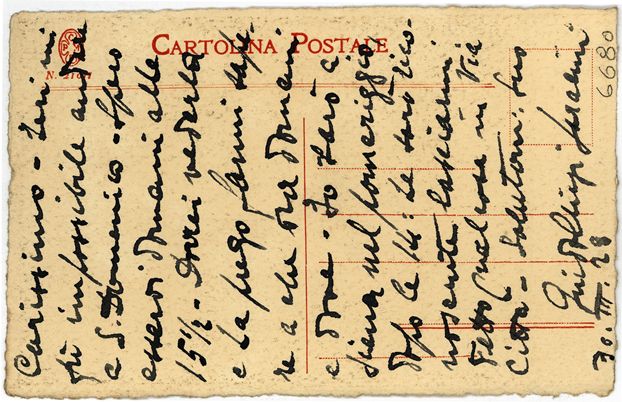 CARTOLINA POSTALE
6680
Carissimo - Ieri mi
fu impossibile andare
a S. Domenico - Spero
esservi domani alle
15½ - Dovrei vederla
e la prego farmi sape-
re a che ora domani
e dove - Io sarò a
Siena nel pomeriggio
dopo le 14: Le sarò rico-
noscente lasciarmi
detto qualcosa in Via
Città - Saluti Suo
30. III. 28